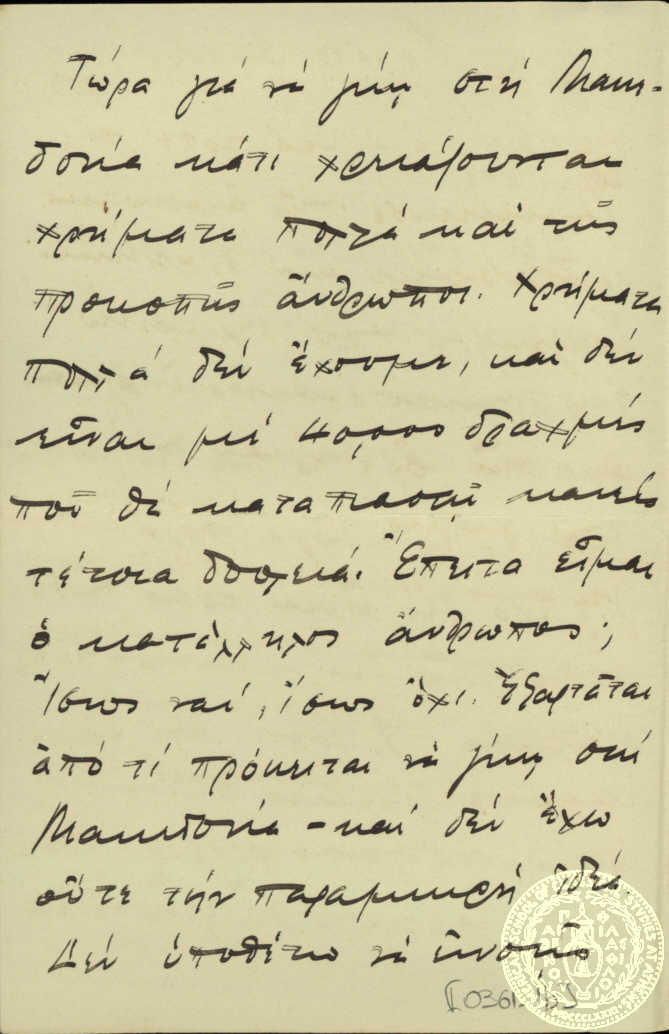 Τώρα γιά νά γίνῃ στή Μακε-
δονία κάτι χρειάζουνται
χρήματα πολλά καί τῆς
προκοπῆς ἄνθρωποι. Χρήματα
πολλά δέν ἔχουμε, καί δέν
εἶναι μέ δραχμές
ποῦ θά καταπιαστῇ κανείς
τέτοια δουλειά. Ἔπειτα εἶμαι
ὁ κατάλληλος ἄνθρωπος;
Ἴσως ναί, ἴσως ὄχι. Ἐξαρτᾶται
ἀπό τί πρόκειται νά γίνῃ στή
Μακεδονία – καί δέν ἔχω
οὔτε τήν παραμικρή ἰδέα.
Δέν ὑποθέτω νά ἐννοῇς